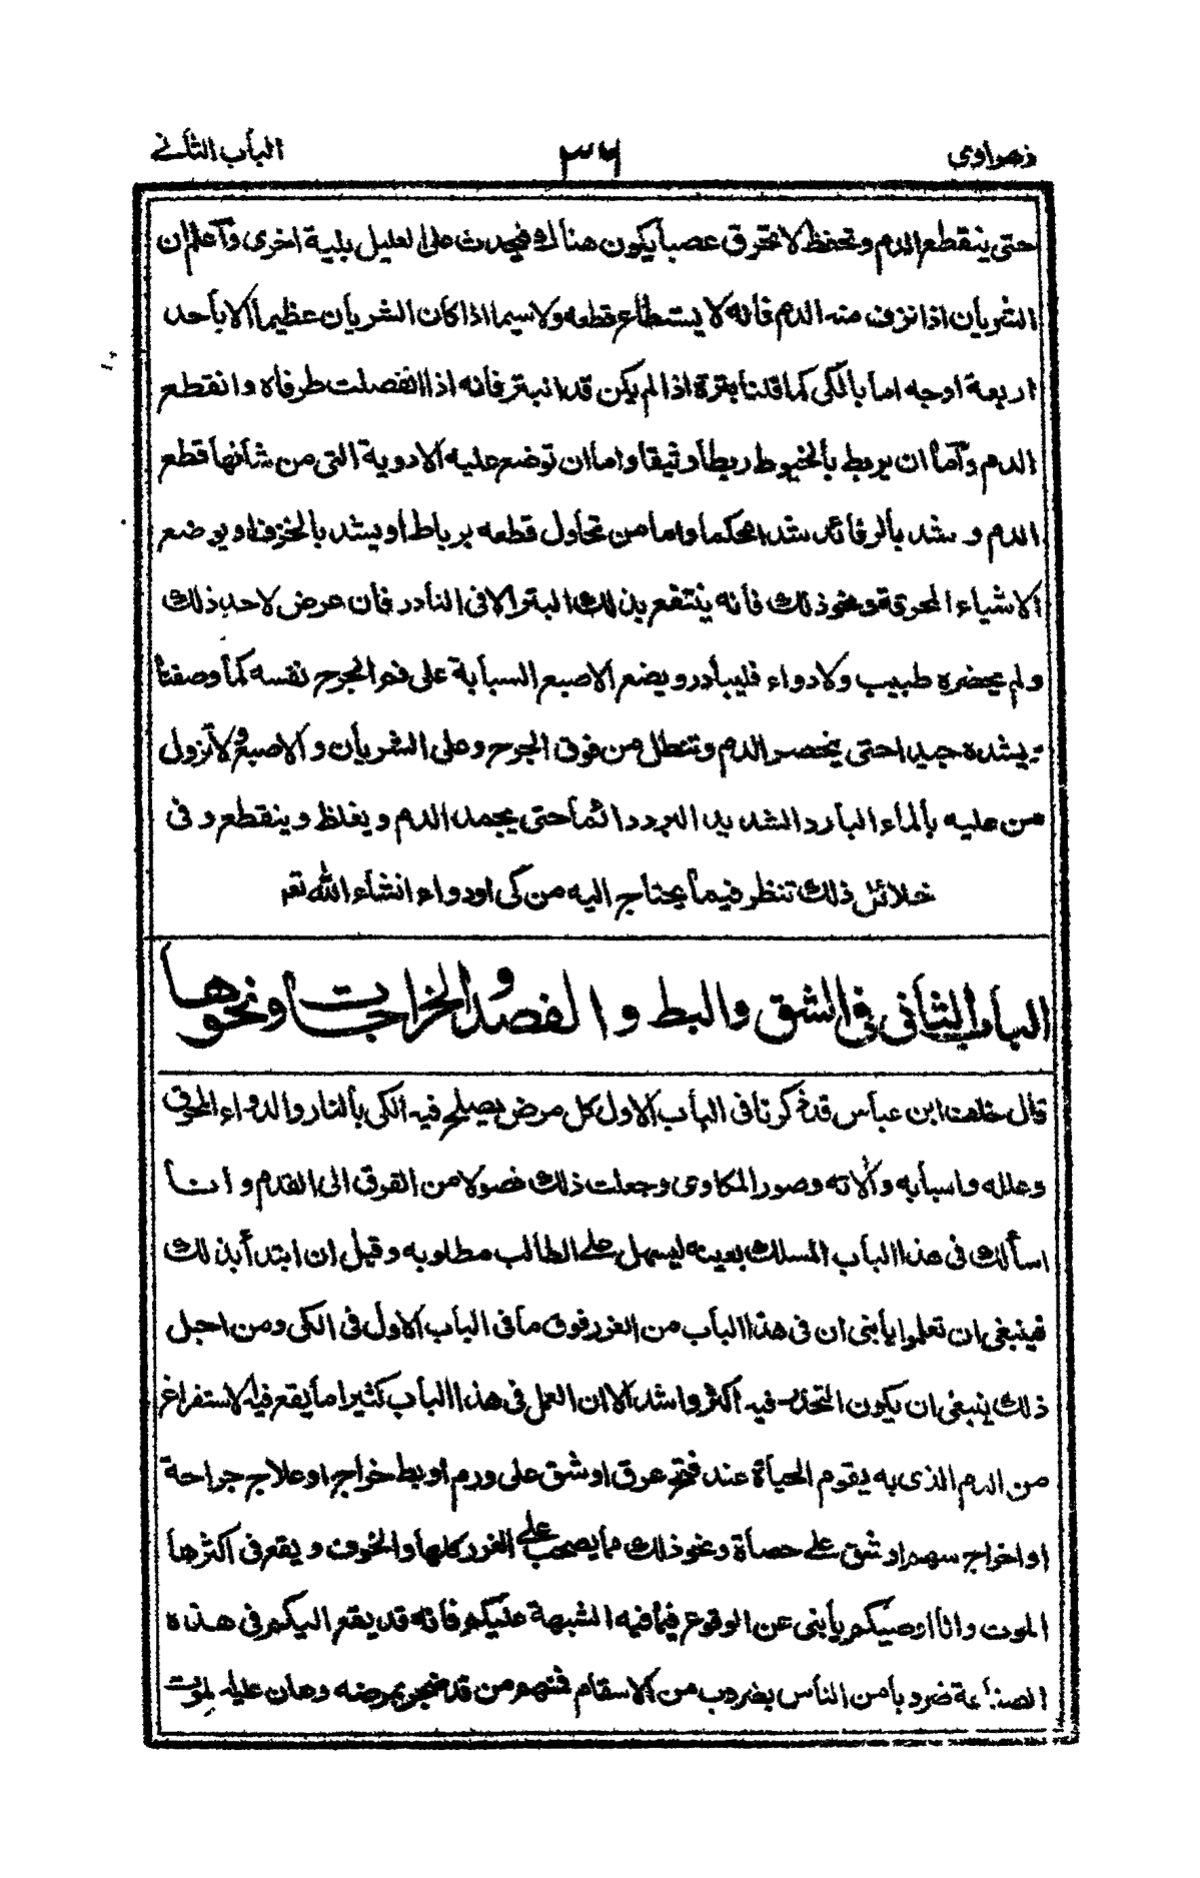 زهراوى
٣٦
الباب الثانے
حتى ينقطع الدم وتحفظ لا تحرق عصبا يكون هناك فيحدث على العليل بلية اخرى وآعلم ان
الشريان اذا نزف منه الدم فانه لا يستطاع قطعه ولا سيما اذا كان الشريان عظيما الا باحد
اربعة اوجه اما بالكى كما قلنا بترة اذا لم يكن قد انبتر فانه اذا انفصلت طرفاه وانقطع
الدم وآما ان يربط بالخيوط ربطا وثيقا واما ان توضع عليه الادوية التى من شانها قطع
الدم و شد بالرفائد شدا محكما واما من تحاول قطعه برباط او يشد بالخرف او يوضع
الاشياء المحرقة ونحو ذلك فانه ينتفع بذلك البتر الا فى النادر فان عرض لاحد ذلك
ولم يحضره طبيب ولا دواء فليبادر ويضع الاصبع السبابة على فم الجرح نفسه كما وصفنا
ويشده جيدا حتى يخصر الدم وتنطل من فوق الجرح وعلى الشريان والاصبع ولا تزول
من عليه بالماء البارد الشديد البرد دائما حتى يجمد الدم ويغلظ وينقطع وفى
خلائل ذلك تنظر فيما يحتاج اليه من كى او دواء انشاء الله تعم
الباب الثانى فى الشق والبط والفصد والخراجات ونحوها
قال خلف ابن عباس قد ذكرنا فى الباب الاول كل مرض يصلح فيه الكى بالنار والدواء المحرق
وعلله واسبابه والاته وصور المكاوى وجعلت ذلك فصولا من القرق الى القدم وانا
اسألك فى هذا الباب المسلك بعينه ليسهل على الطالب مطلوبه وقبل ان ابتدأ بذلك
فينبغى ان تعلموا يا بنى ان فى هذا الباب من الغرر فوق ما فى الباب الاول فى الكى ومن اجل
ذلك ينبغى ان يكون التحذير فيه اكثر واشد الا ان العمل فى هذا الباب كثيرا ما يقع فيه الاستفراغ
من الدم الذى به يقوم الحياة عند فتح عرق او شق على ورم او بط خراج او علاج جراحة
او اخراج سهم او شق على حصاة ونحو ذلك مما يصحب على الغرر كلها والخوف ويقع فى اكثرها
الموت وانا اوصيكم يا بنى عن الوقوع فيما فيه الشبهة عليكم فانه قد يقع اليكم فى هذه
الصناعة ضروبا من الناس بضروب من الاسقام فمنهم من قد ضجر بمرضه وهان عليه لموت